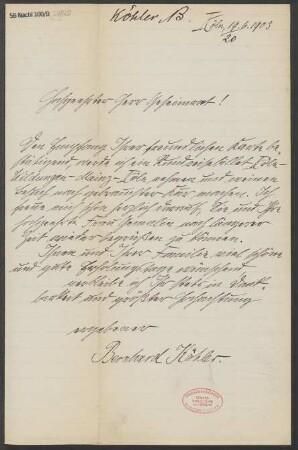 SB Nachl 300/B
Köhler, B.
Köln, 19.6.1903
20
Hochgeehrter Herr Geheimrat!
Den Empfang Ihrer freundlichen Karte be-
stätigend werde ich ein Rundreisebillet Köln-
Wildungen-Mainz-Köln nehmen und meinen
Besuch nach gebrauchter Kur machen. Ich
freue mich schon herzlich darauf, Sie und Ihre
hochgeehrte Frau Gemahlin nach längerer
Zeit wieder begrüßen zu können.
Ihnen und Ihrer Familie viel schöne
und gute Erholungstage wünschend
verbleibe ich Ihr stets in Dank-
barkeit und größter Hochachtung
ergebener
Bernhard Köhler.